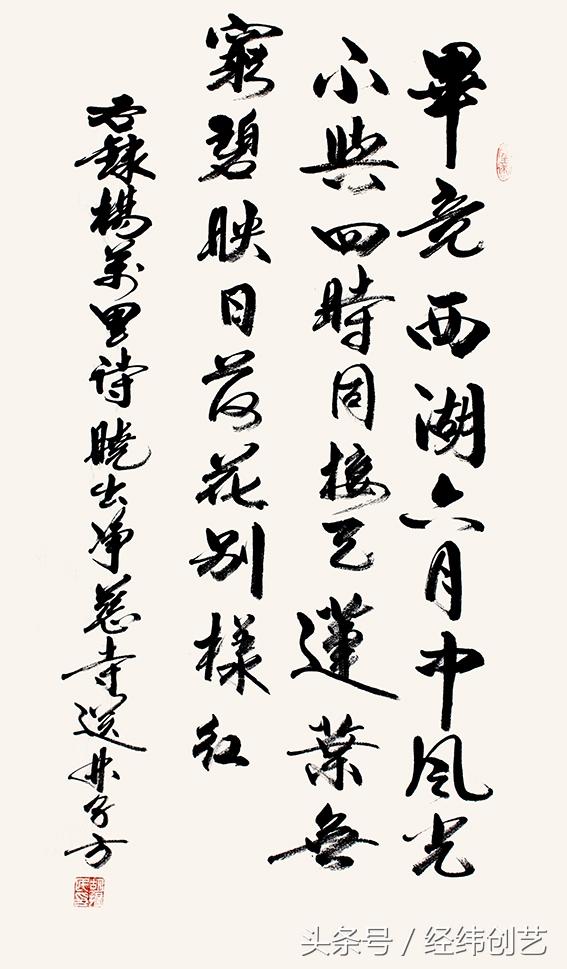 畢竟西湖六月中風光
不與四時同接天蓮葉無
窮碧映日荷花別樣紅
右録楊萬里詩曉出净慈寺送林子方
头条号 / 经纬创艺